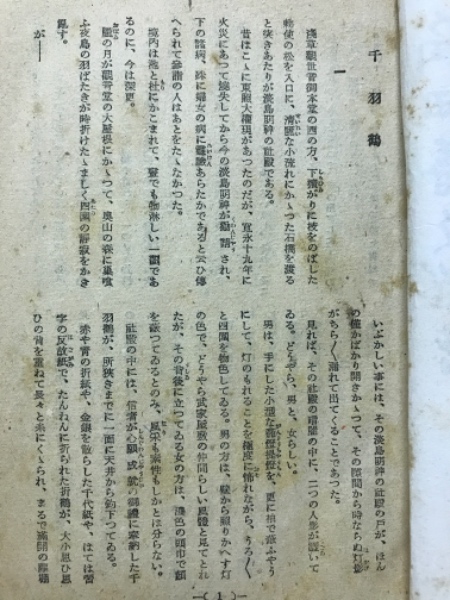 千羽鶴
一
淺草觀世音御本堂の西の方、下擴がりに枝をのばした
婚使の松を入口に、清冽な小流れにかゝつた石橋を渡る
と突きあたりが淡島明神の社殿である。
昔はこゝに東照大權現があつたのだが、寛永十九年に
火災にあつて燒失してから今の淡島明神が勸請され、
下の諸病、殊に婦女の病に靈驗あらたかであると云ひ傳
へられて參詣の人はあとをたゝなかつた。
境内は池と杜にかこまれて、晝でも物淋しい一廓であ
るのに、今は深更。
朧の月が觀音堂の大屋根にかゝつて、奧山の森に巣喰
ふ夜鳥の羽ばたきが時折けたゝましく四圍の靜寂をかき
亂す。
が――
いぶかしい事には、その淡島明神の社殿の戸が、ほん
の僅かばかり開きかゝつて、その隙間から時ならぬ灯影
がちら〱洩れて出てくることであつた。
見れば、その社殿の暗闇の中に、二つの人影が蠢いて
ゐる。どうやら、男と、女らしい。
男は、手にした小型な提燈を、更に袖で蔽ふやう
にして、灯のもれることを極度に怖れながら、うろ〱
と四圍を物色してゐる。男の方は、袖から照りかへす灯
の色で、どうやら武家屋敷の仲間らしい風體と見てとれ
たが、その背後に立つてゐる女の方は、淺色の頭巾で顏
を蔽つてゐるとのみ、風采も素性もしかとは分らない。
社殿の中には、信者が心願成就の御禮に奉納した千
羽鶴が、所狹きまでに一面に天井から釣下つてゐる。
赤や靑の折紙や、金銀を散らした千代紙や、はては習
字の反故紙で、たんねんに折られた折鶴が、大小思ひ思
ひの背を重ねて長々と糸にくゝられ、まるで滿開の藤棚
―(1)―